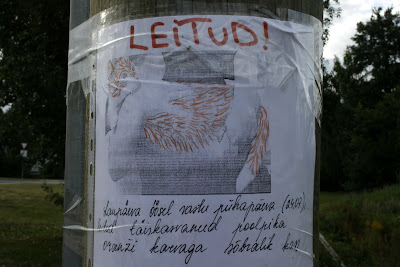 LEITUD!
Laupäeva öösel vastu pühapäeva (24.07),
leitud täiskasvanud poolpika
oranži karvaga sõbralik kass